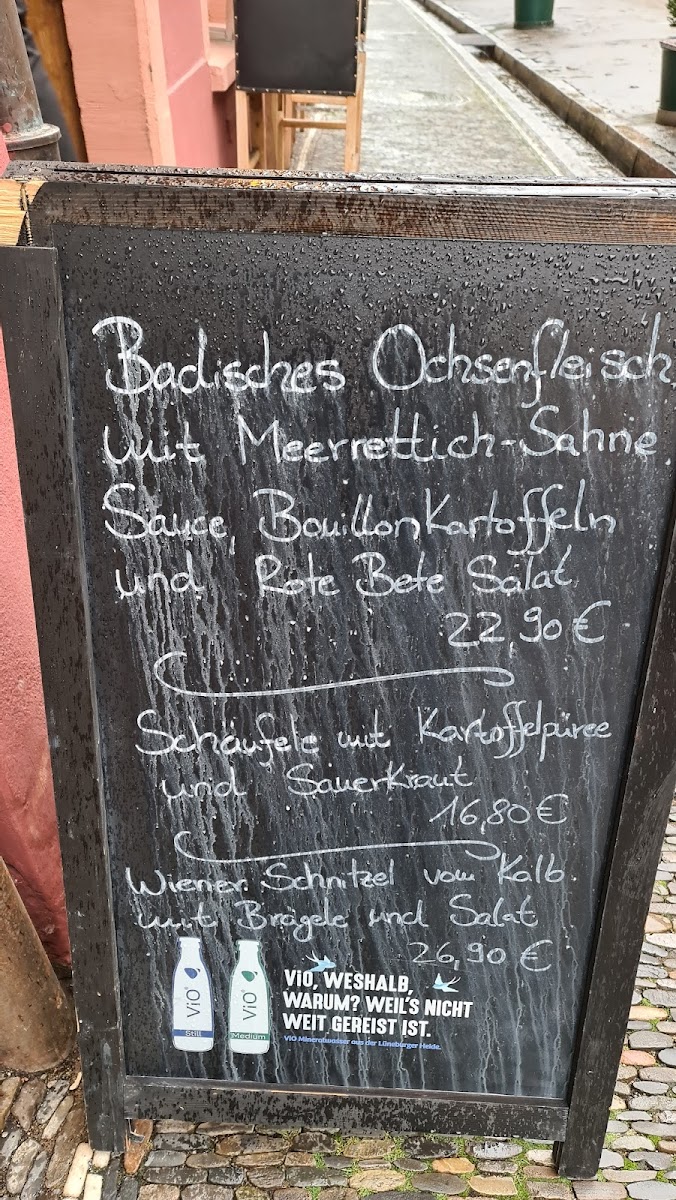 Badisches Ochsenfleisch
mit Meerrettich-Sahne
Sauce, Bouillonkartoffeln
und Rote Bete Salat
22,90 €
Schäufele mit Kartoffelpüree
und Sauerkraut
16,80 €
Wiener Schnitzel vom Kalb
mit Brägele und Salat
26,90 €
ViO
Still
ViO
Medium
ViO, WESHALB,
WARUM? WEIL'S NICHT
WEIT GEREIST IST.
ViO Mineralwasser aus der Lüneburger Heide.